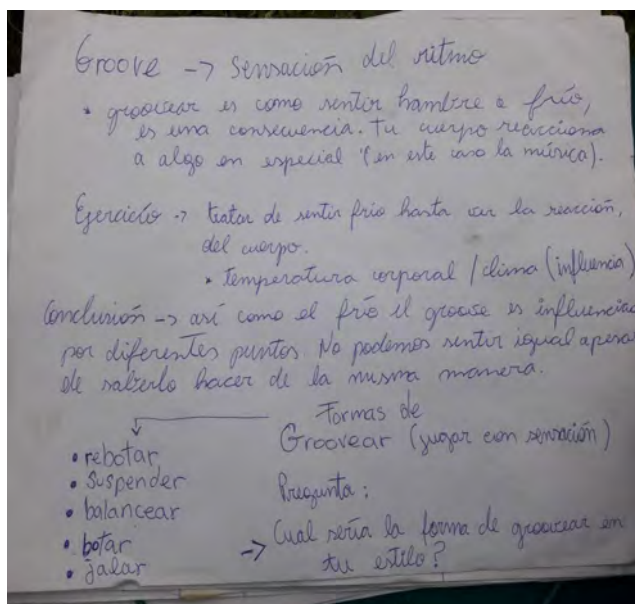 Groove -> Sensación del ritmo
• groovear es como sentir hambre o frío,
es una consecuencia. Tu cuerpo reacciona
a algo en especial (en este caso la música).
Ejercicio -> tratar de sentir frio hasta ver la reacción,
del cuerpo.
• temperatura corporal / clima (influencia)
Conclusión -> así como el frío el groove es influenciad
por diferentes puntos. No podemos sentir igual apesa
de saberlo hacer de la misma manera.
Formas de
Groovear (jugar con sensación)
• rebotar
• Suspender
• balancear
• botar
• jalar
Pregunta:
-> Cual sería la forma de groovear en
tu estilo?